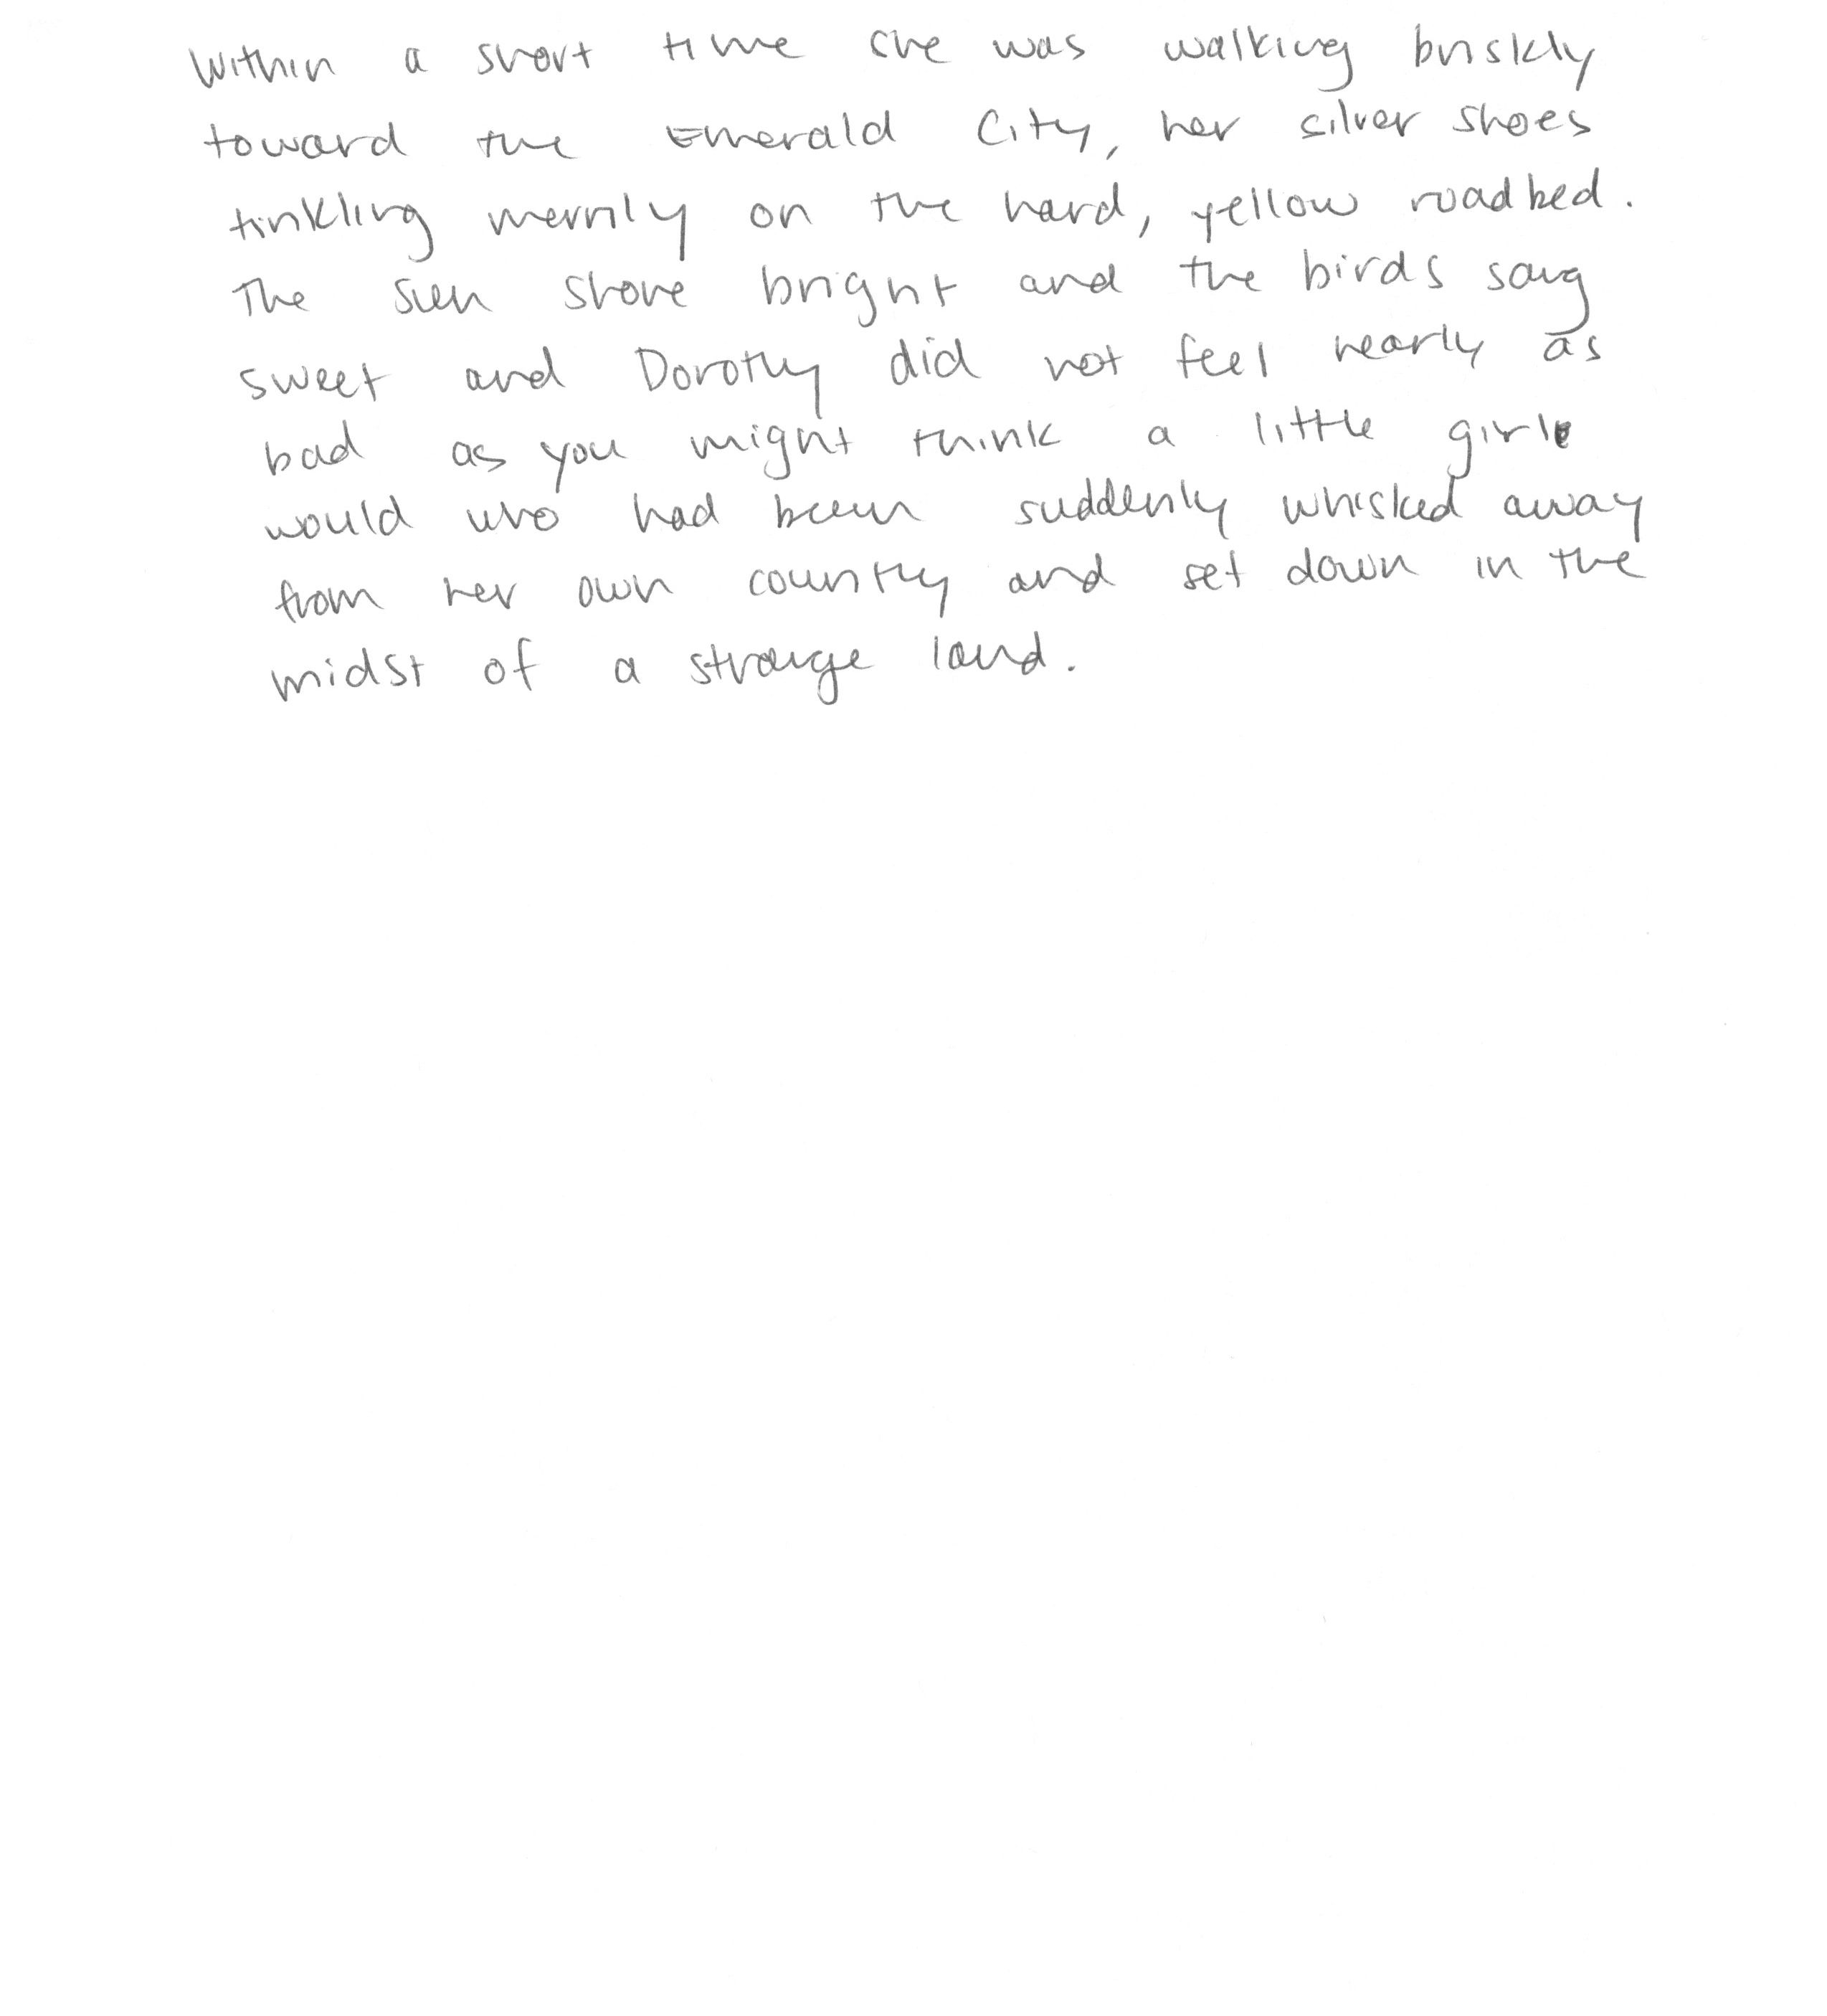 Within a short time she was walking briskly
toward the Emerald City, her silver shoes
tinkling merrily on the hard, yellow roadbed.
The sun shone bright and the birds sang
sweet and Dorothy did not feel nearly as
bad as you might think a little girl
would who had been suddenly whisked away
from her own country and set down in the
midst of a strange land.